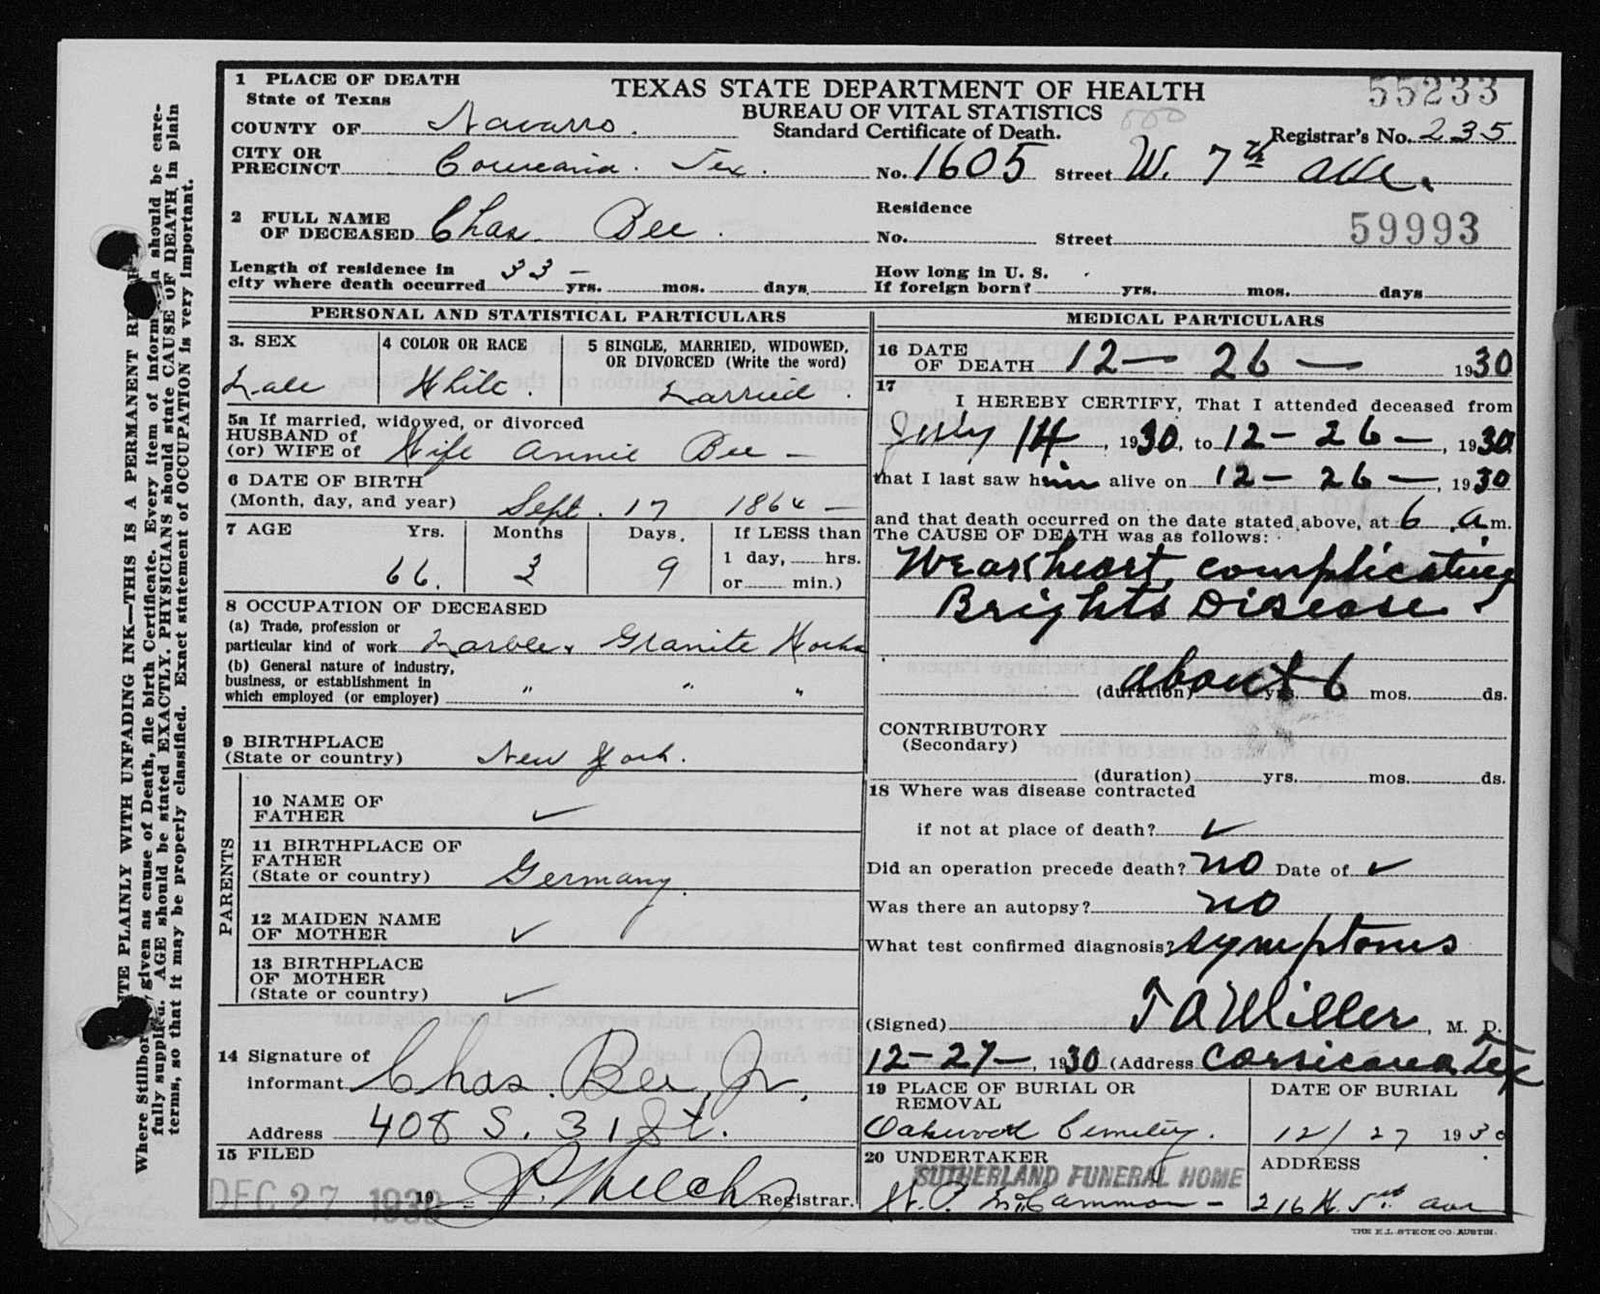 1 PLACE OF DEATH
State of Texas
COUNTY OF Navarro.
CITY OR
PRECINCT Corsicana. Tex.
TEXAS STATE DEPARTMENT OF HEALTH
BUREAU OF VITAL STATISTICS
Standard Certificate of Death.
55233
Registrar's No. 235
No. 1605 Street W. 7th ave.
2 FULL NAME
OF DECEASED Chas. Bee.
Residence
No. Street 59993
Length of residence in
city where death occurred 33 – yrs. mos. days
How long in U. S.
If foreign born? yrs. mos. days
PERSONAL AND STATISTICAL PARTICULARS
3. SEX
Male
4 COLOR OR RACE
White.
5 SINGLE, MARRIED, WIDOWED,
OR DIVORCED (Write the word)
Married.
5a If married, widowed, or divorced
HUSBAND of
(or) WIFE of Wife Annie Bee –
6 DATE OF BIRTH
(Month, day, and year) Sept. 17 1864 –
7 AGE Yrs. Months Days. If LESS than
1 day, hrs.
or min.)
66. 3 9
8 OCCUPATION OF DECEASED
(a) Trade, profession or
particular kind of work Marble & Granite Works
(b) General nature of industry,
business, or establishment in
which employed (or employer) " " "
9 BIRTHPLACE
(State or country) New York.
PARENTS
10 NAME OF
FATHER ✓
11 BIRTHPLACE OF
FATHER
(State or country) Germany.
12 MAIDEN NAME
OF MOTHER ✓
13 BIRTHPLACE
OF MOTHER
(State or country) ✓
14 Signature of
informant Chas. Bee, Jr.
Address 408 S. 31 St.
15 FILED
DEC 27 1930 19 Registrar.
MEDICAL PARTICULARS
16 DATE
OF DEATH 12 – 26 – 1930
17
I HEREBY CERTIFY, That I attended deceased from
July 14, 1930, to 12 – 26 –, 1930
that I last saw him alive on 12 – 26 –, 1930
and that death occurred on the date stated above, at 6 a m.
The CAUSE OF DEATH was as follows:
Weak heart, complicating
Brights Disease.
about 6
(duration) yrs. mos. ds.
CONTRIBUTORY
(Secondary)
(duration) yrs. mos. ds.
18 Where was disease contracted
if not at place of death? ✓
Did an operation precede death? no Date of ✓
Was there an autopsy? no
What test confirmed diagnosis? symptoms
(Signed) T A Miller, M. D.
12 – 27 –, 1930 (Address Corsicana Tex
19 PLACE OF BURIAL OR
REMOVAL
Oakwood Cemetery.
DATE OF BURIAL
12/27 1930
20 UNDERTAKER
SUTHERLAND FUNERAL HOME
W. P. McCammon –
ADDRESS
216 W. 5th ave
THE E.L. STECK CO. AUSTIN.
WRITE PLAINLY WITH UNFADING INK—THIS IS A PERMANENT
Where Stillbor given as cause of Death, file birth Certificate. Every item of inform should be care-
fully supplied. AGE should be stated EXACTLY. PHYSICIANS should state CAUSE OF DEATH in plain
terms, so that it may be properly classified. Exact statement of OCCUPATION is very important.